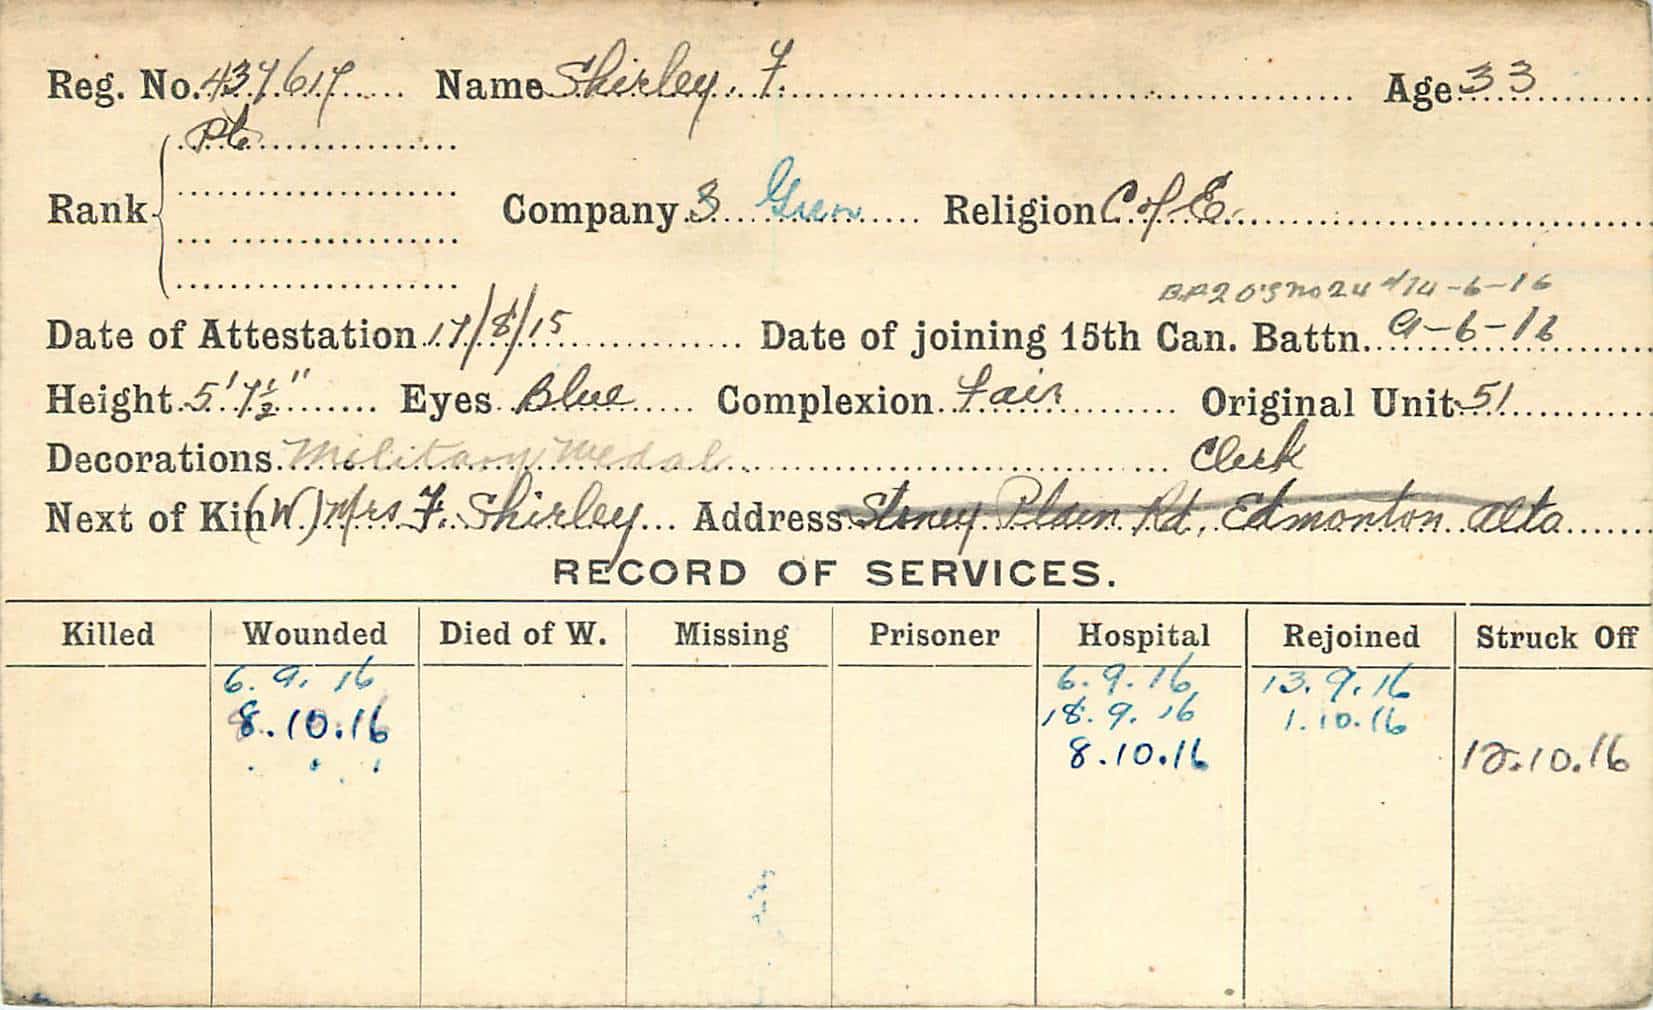 Reg. No. 437617 Name Shirley, F. Age 33
Pte
Rank Company 3 Religion C of E.
14-6-16
Date of Attestation 17/8/15 Date of joining 15th Can. Battn. 9-6-16
Height 5' 7½" Eyes Blue Complexion Fair Original Unit 51
Decorations Military Medal Clerk
Next of Kin (W.) Mrs F. Shirley Address Stoney Plain Rd, Edmonton Alta
RECORD OF SERVICES.
Killed Wounded Died of W. Missing Prisoner Hospital Rejoined Struck Off
6.9.16 6.9.16 13.9.16
8.10.16 18.9.16 1.10.16
8.10.16 12.10.16